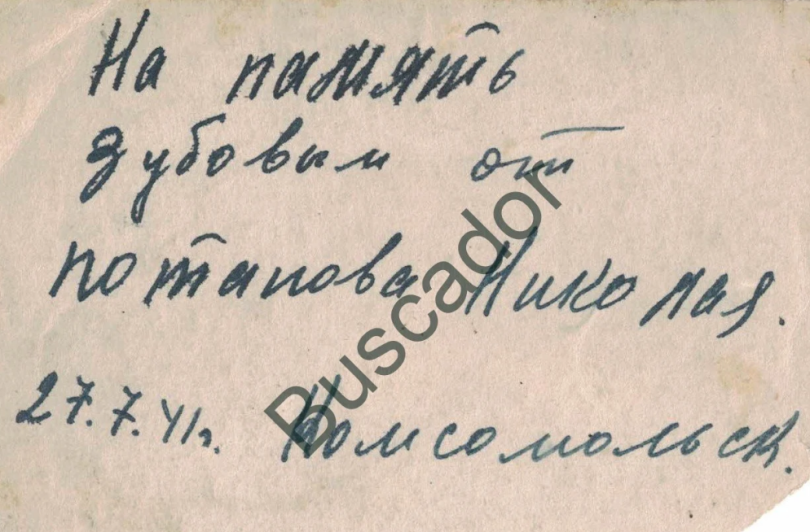 На память
Зубовым от
потапова Николая.
27.7.41г. Комсомольск.
Buscador